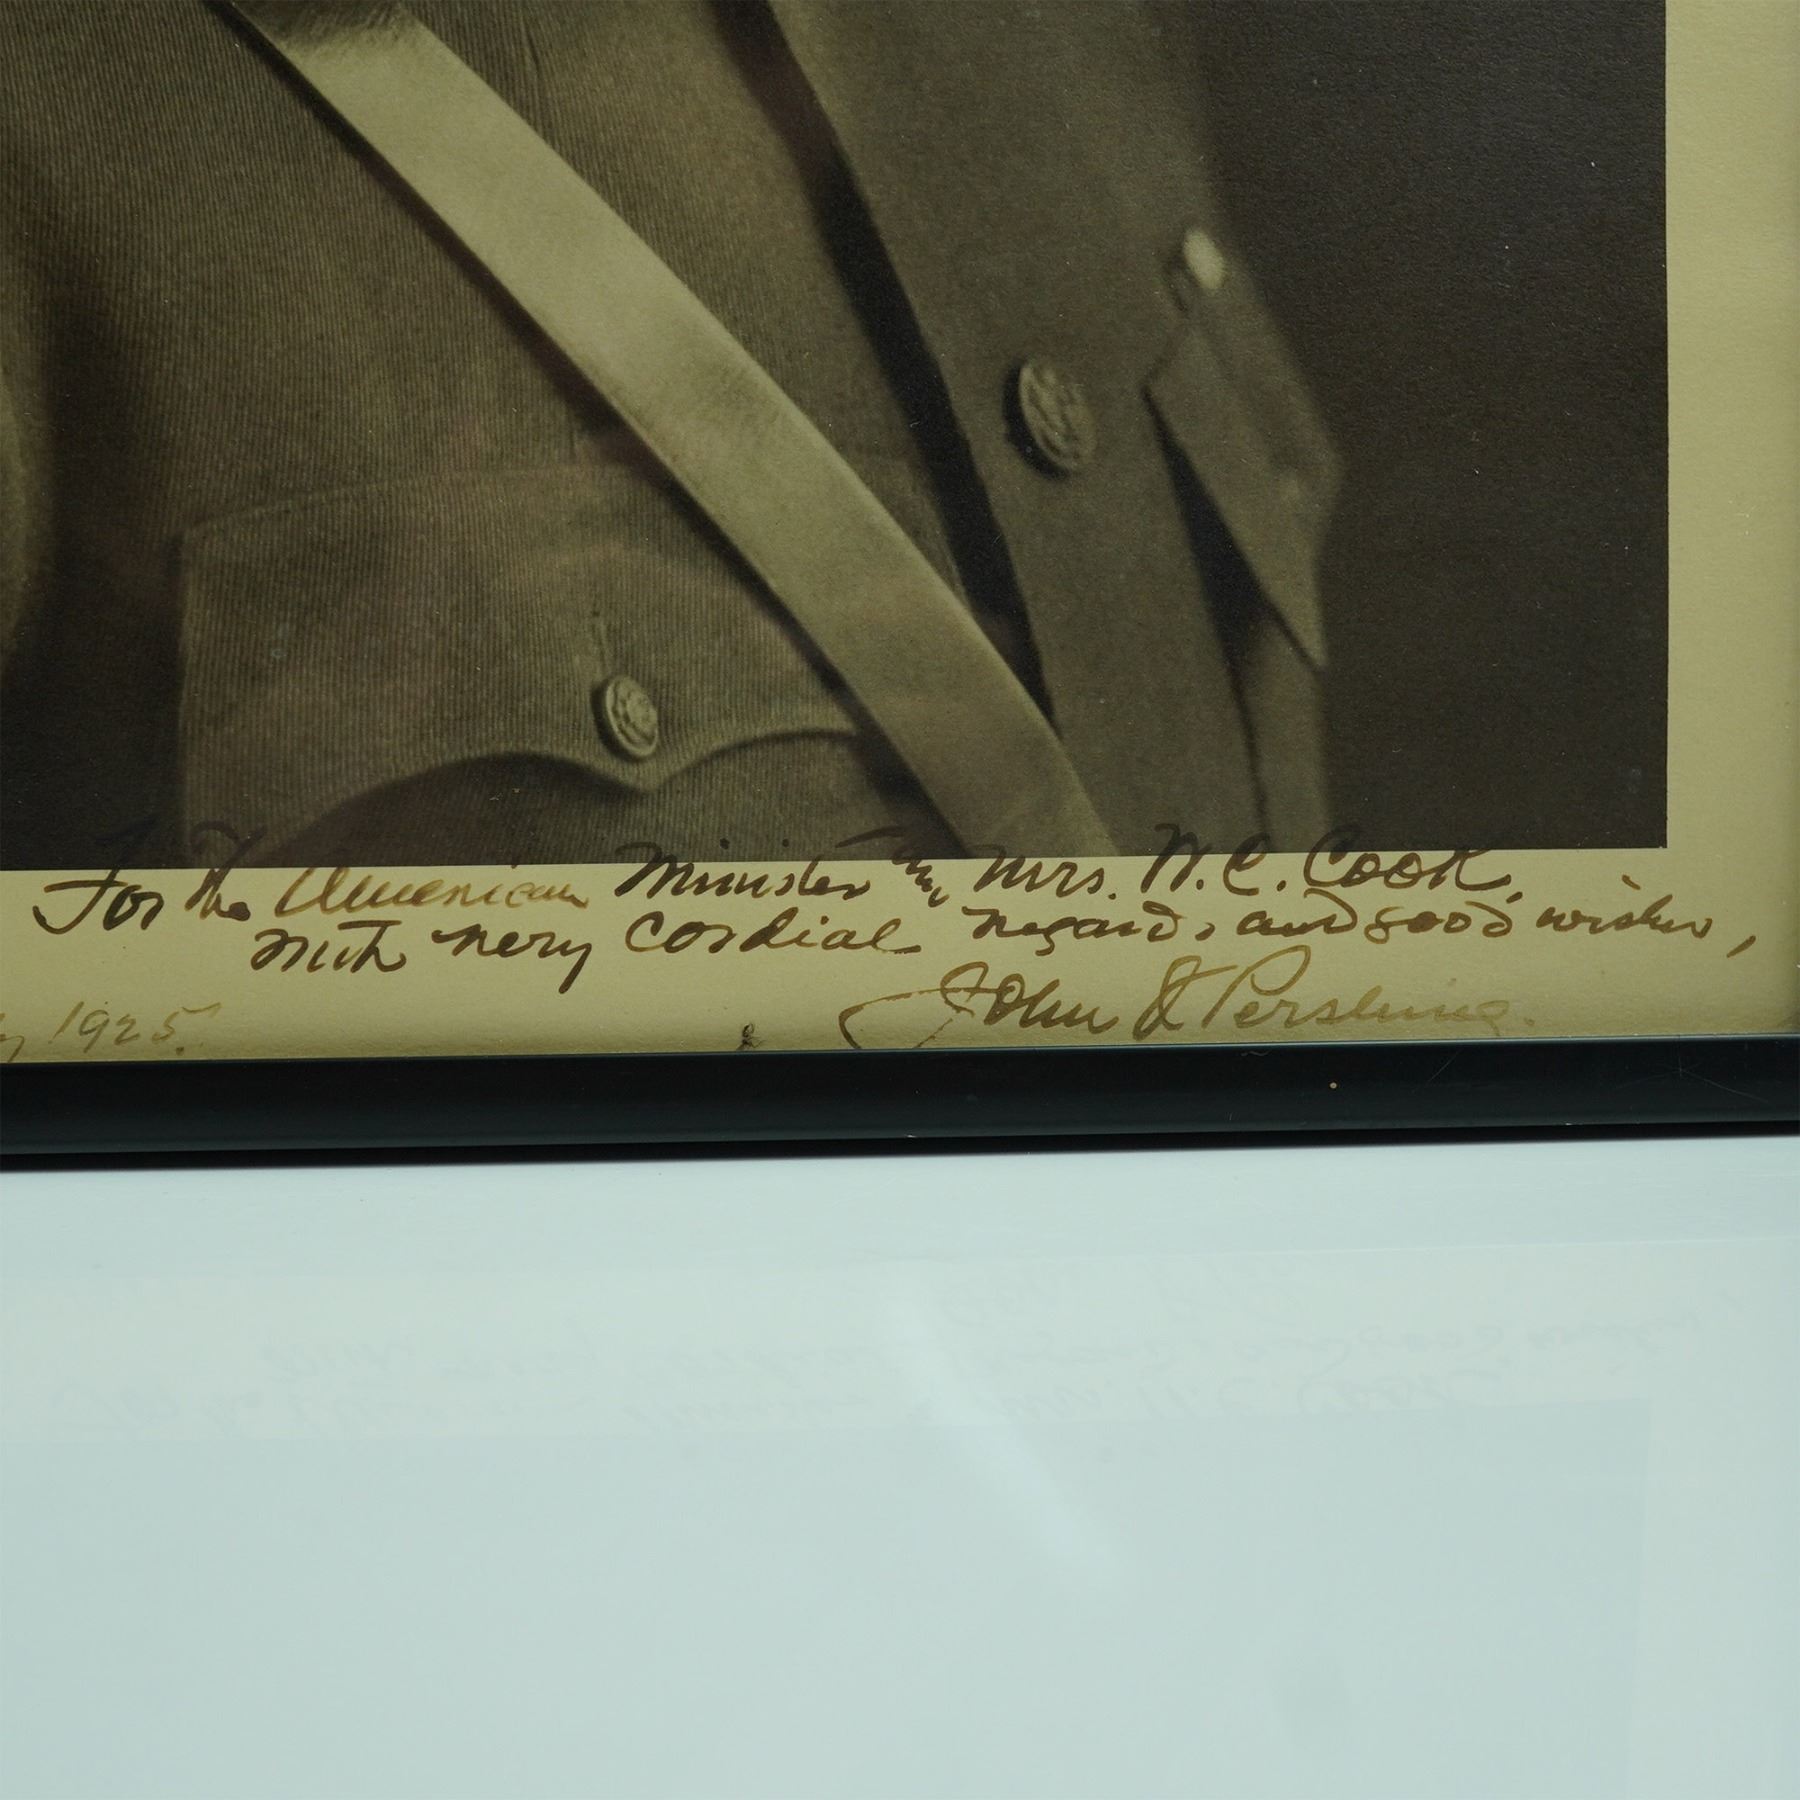 For the American Minister and Mrs. W. C. Cook,
with very cordial regards and good wishes,
John J Pershing.
y 1925.